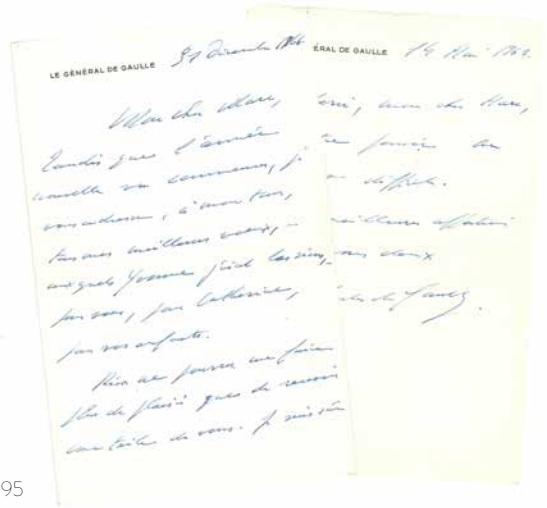 LE GÉNÉRAL DE GAULLE 31 Décembre
Mon cher Marc,
Tandis que l'année
nouvelle va commencer, je
vous adresse, à mon tour,
tous mes meilleurs vœux,
auxquels Yvonne joint les siens,
pour vous, pour Catherine,
pour vos enfants.
Rien ne pouvait me faire
plus de plaisir que de recevoir
une toile de vous. Je suis
ÉRAL DE GAULLE 14 Mai
mon cher Marc,
pensée
difficile.
meilleure affection
deux
de Gaulle.
95